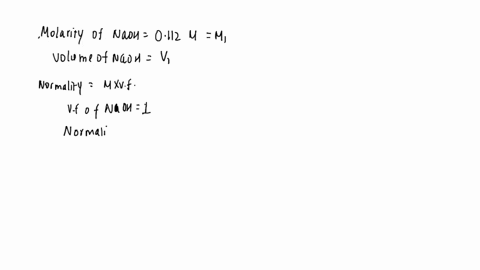 .Molarity of NaOH = 0.112 M = M₁
Volume of NaOH = V₁
Normality = M x v.f.
V.f of NaOH = 1
Normali